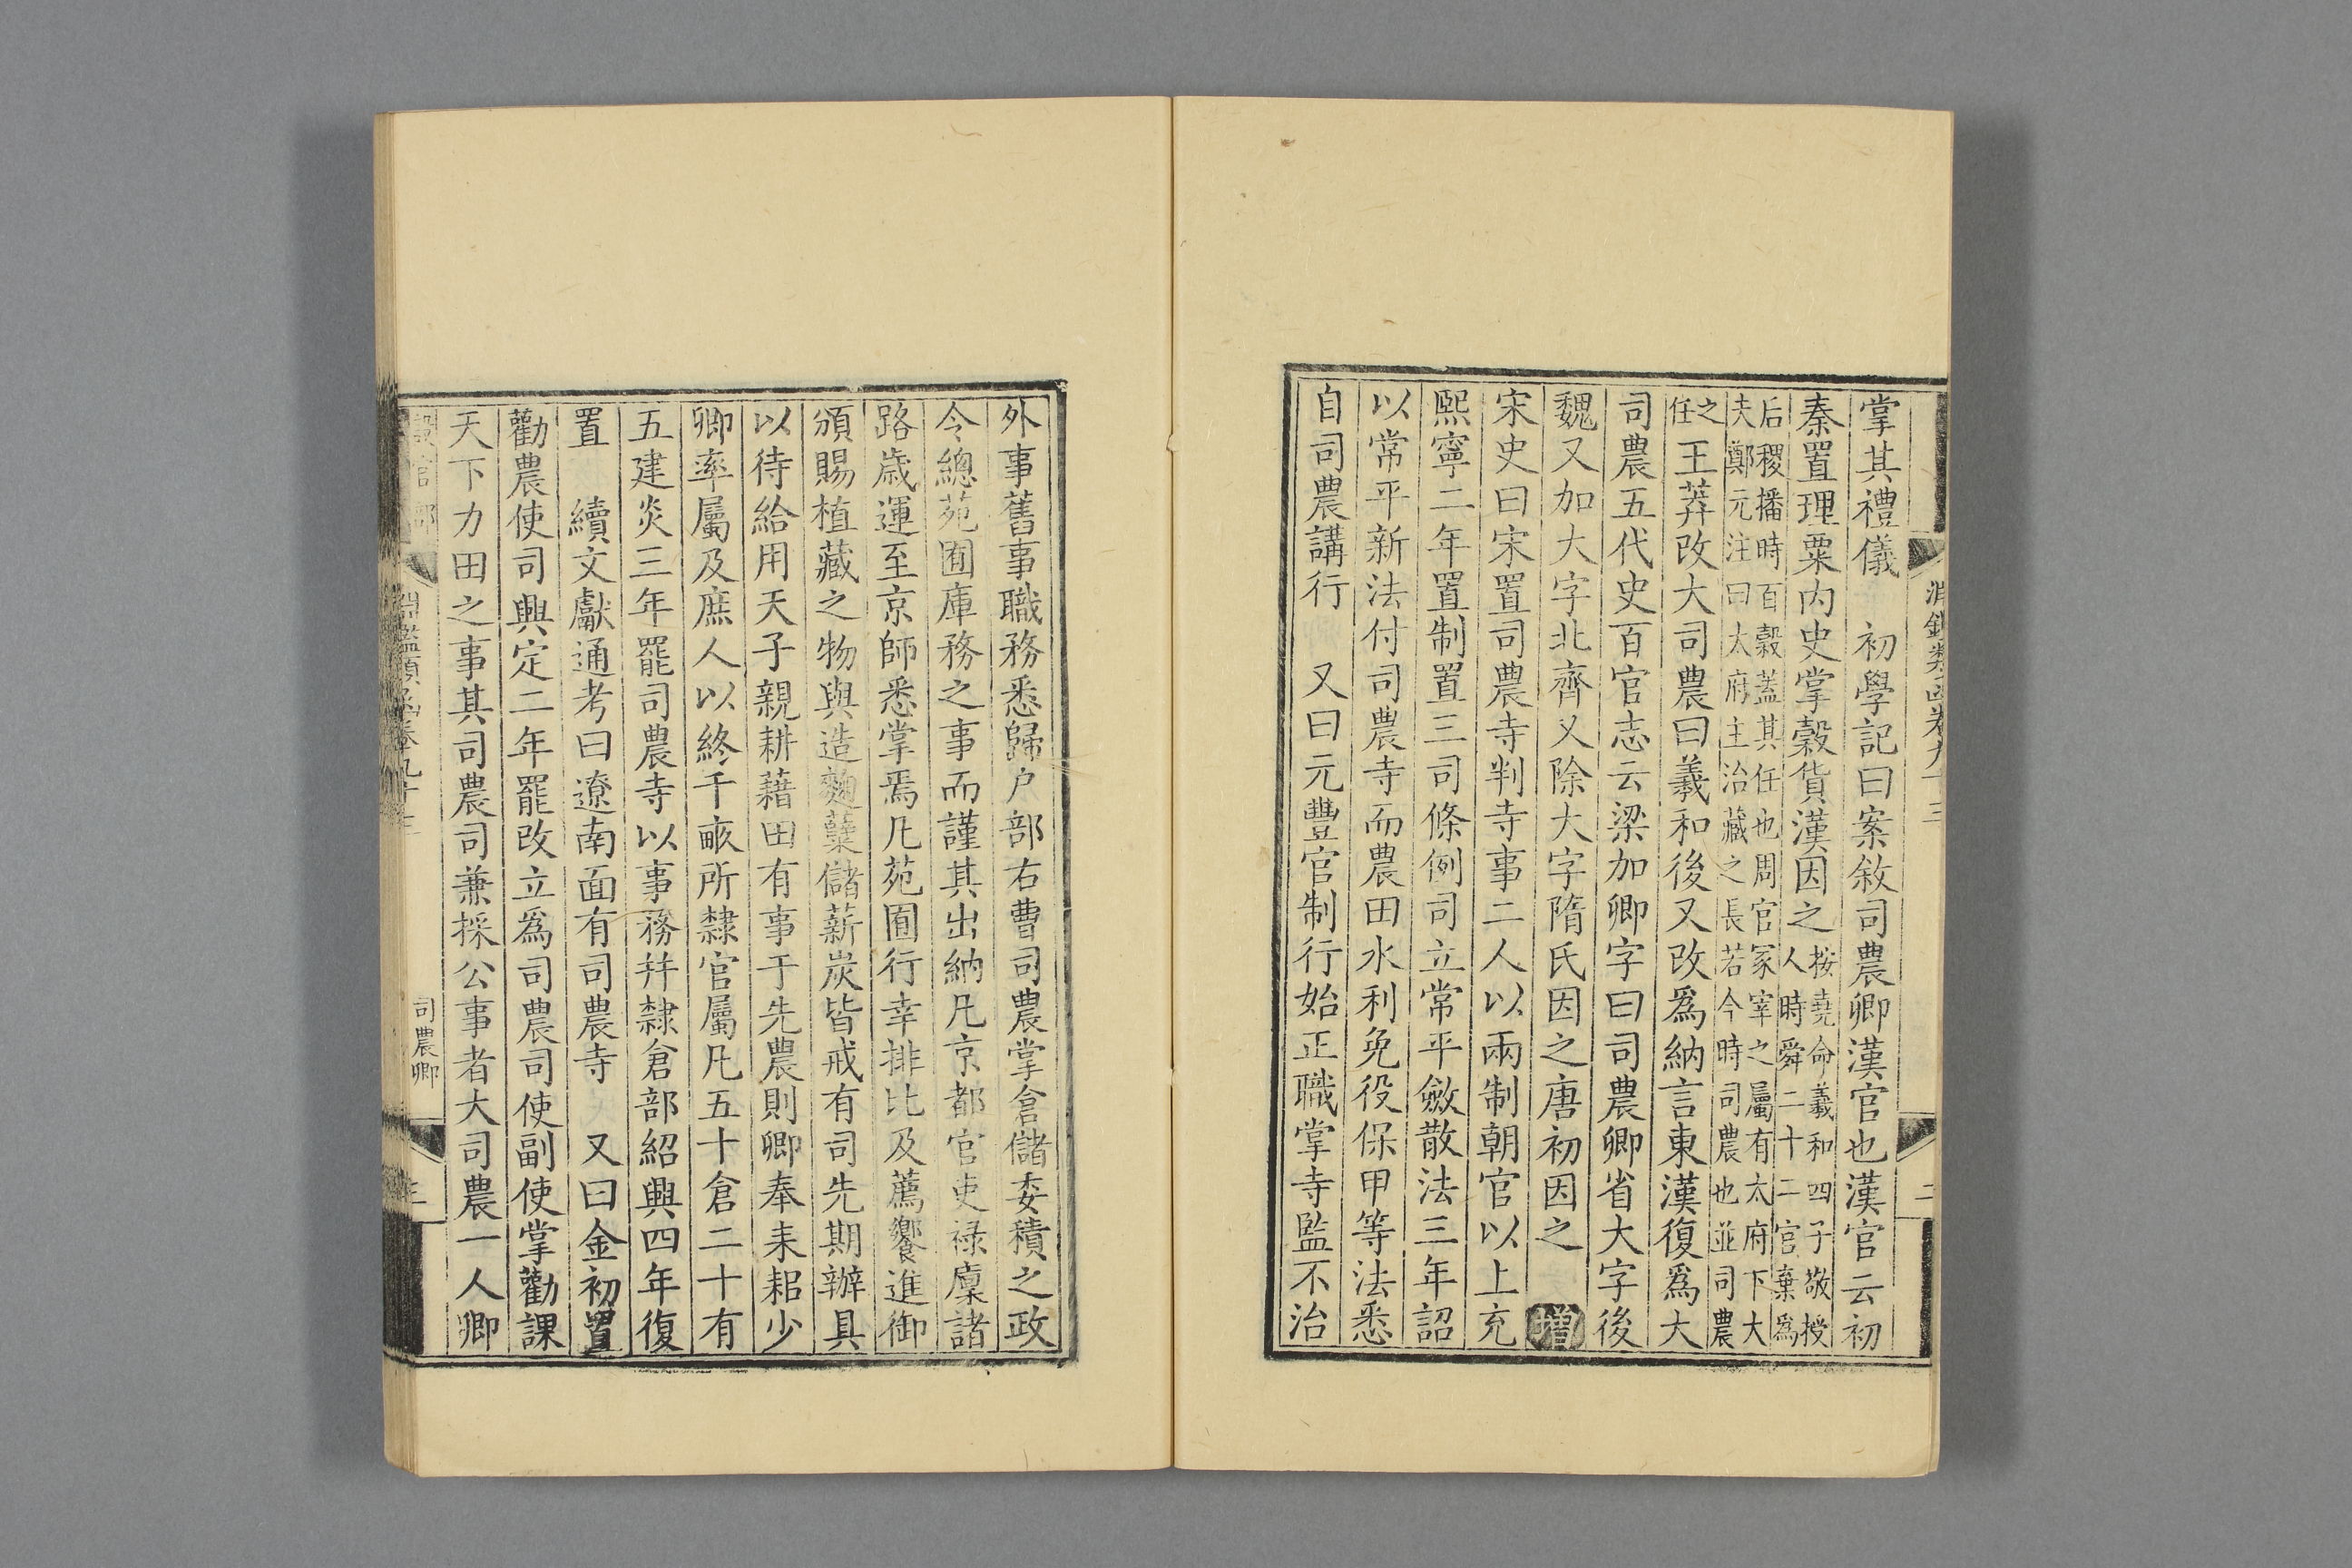 淵鑑類函卷九十三
二
掌其禮儀　初學記曰案敘司農卿漢官也漢官云初
秦置理粟內史掌穀貨漢因之按堯命羲和四子敬授人時舜二十二官棄爲
后稷播時百穀蓋其任也周官冢宰之屬有太府下大夫鄭元注曰太府主治藏之長若今時司農也並司農
之任王莽改大司農曰羲和後又改爲納言東漢復爲大
司農五代史百官志云梁加卿字曰司農卿省大字後
魏又加大字北齊又除大字隋氏因之唐初因之　增
宋史曰宋置司農寺判寺事二人以兩制朝官以上充
熙寧二年置制置三司條例司立常平斂散法三年詔
以常平新法付司農寺而農田水利免役保甲等法悉
自司農講行　又曰元豐官制行始正職掌寺監不治
外事舊事職務悉歸戶部右曹司農掌倉儲委積之政
令總苑囿庫務之事而謹其出納凡京都官吏祿廩諸
路歲運至京師悉掌焉凡苑囿行幸排比及薦饗進御
頒賜植藏之物與造麴糵儲薪炭皆戒有司先期辦具
以待給用天子親耕藉田有事于先農則卿奉耒耜少
卿率屬及庶人以終千畝所隸官屬凡五十倉二十有
五建炎三年罷司農寺以事務并隸倉部紹興四年復
置　續文獻通考曰遼南面有司農寺　又曰金初置
勸農使司興定二年罷改立爲司農司使副使掌勸課
天下力田之事其司農司兼採公事者大司農一人卿
設官部
淵鑑類函卷九十三
司農卿
三